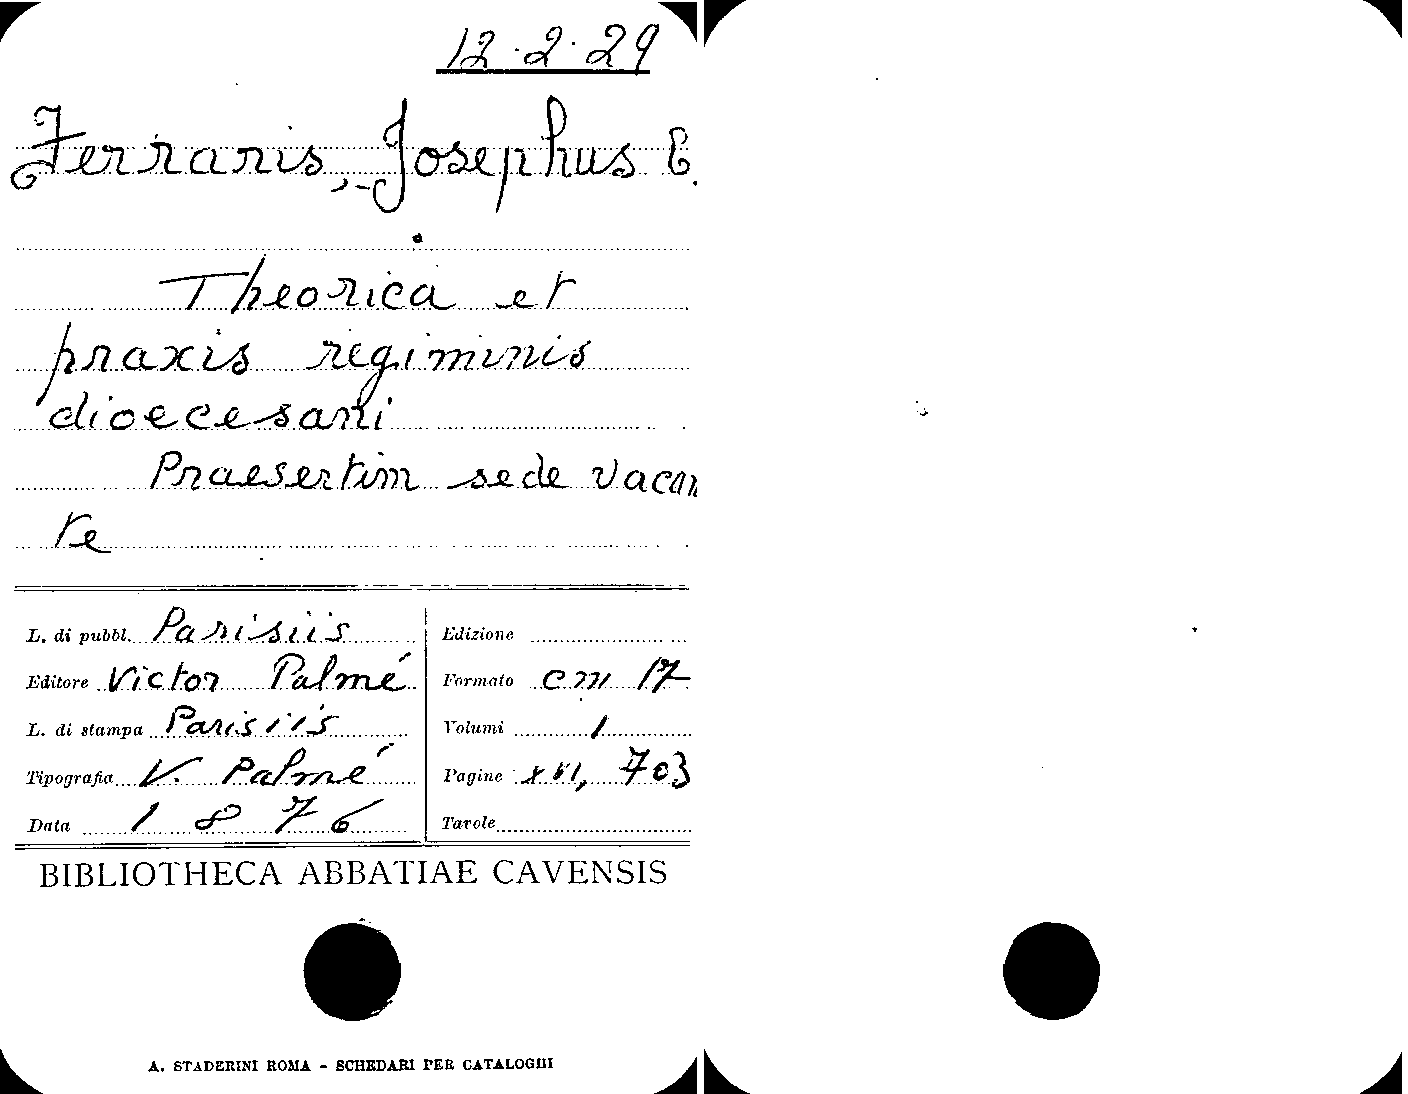 12.2.29
Ferraris, Josephus C.
Theorica et
praxis regiminis
dioecesani
Praesertim sede vacan
te
L. di pubbl. Parisiis
Editore Victor Palmé
L. di stampa Parisiis
Tipografia V. Palmé
Data 1876
Edizione
Formato cm 17
Volumi 1
Pagine XVI, 703
Tavole
BIBLIOTHECA ABBATIAE CAVENSIS
A. STADERINI ROMA - SCHEDARI PER CATALOGHI